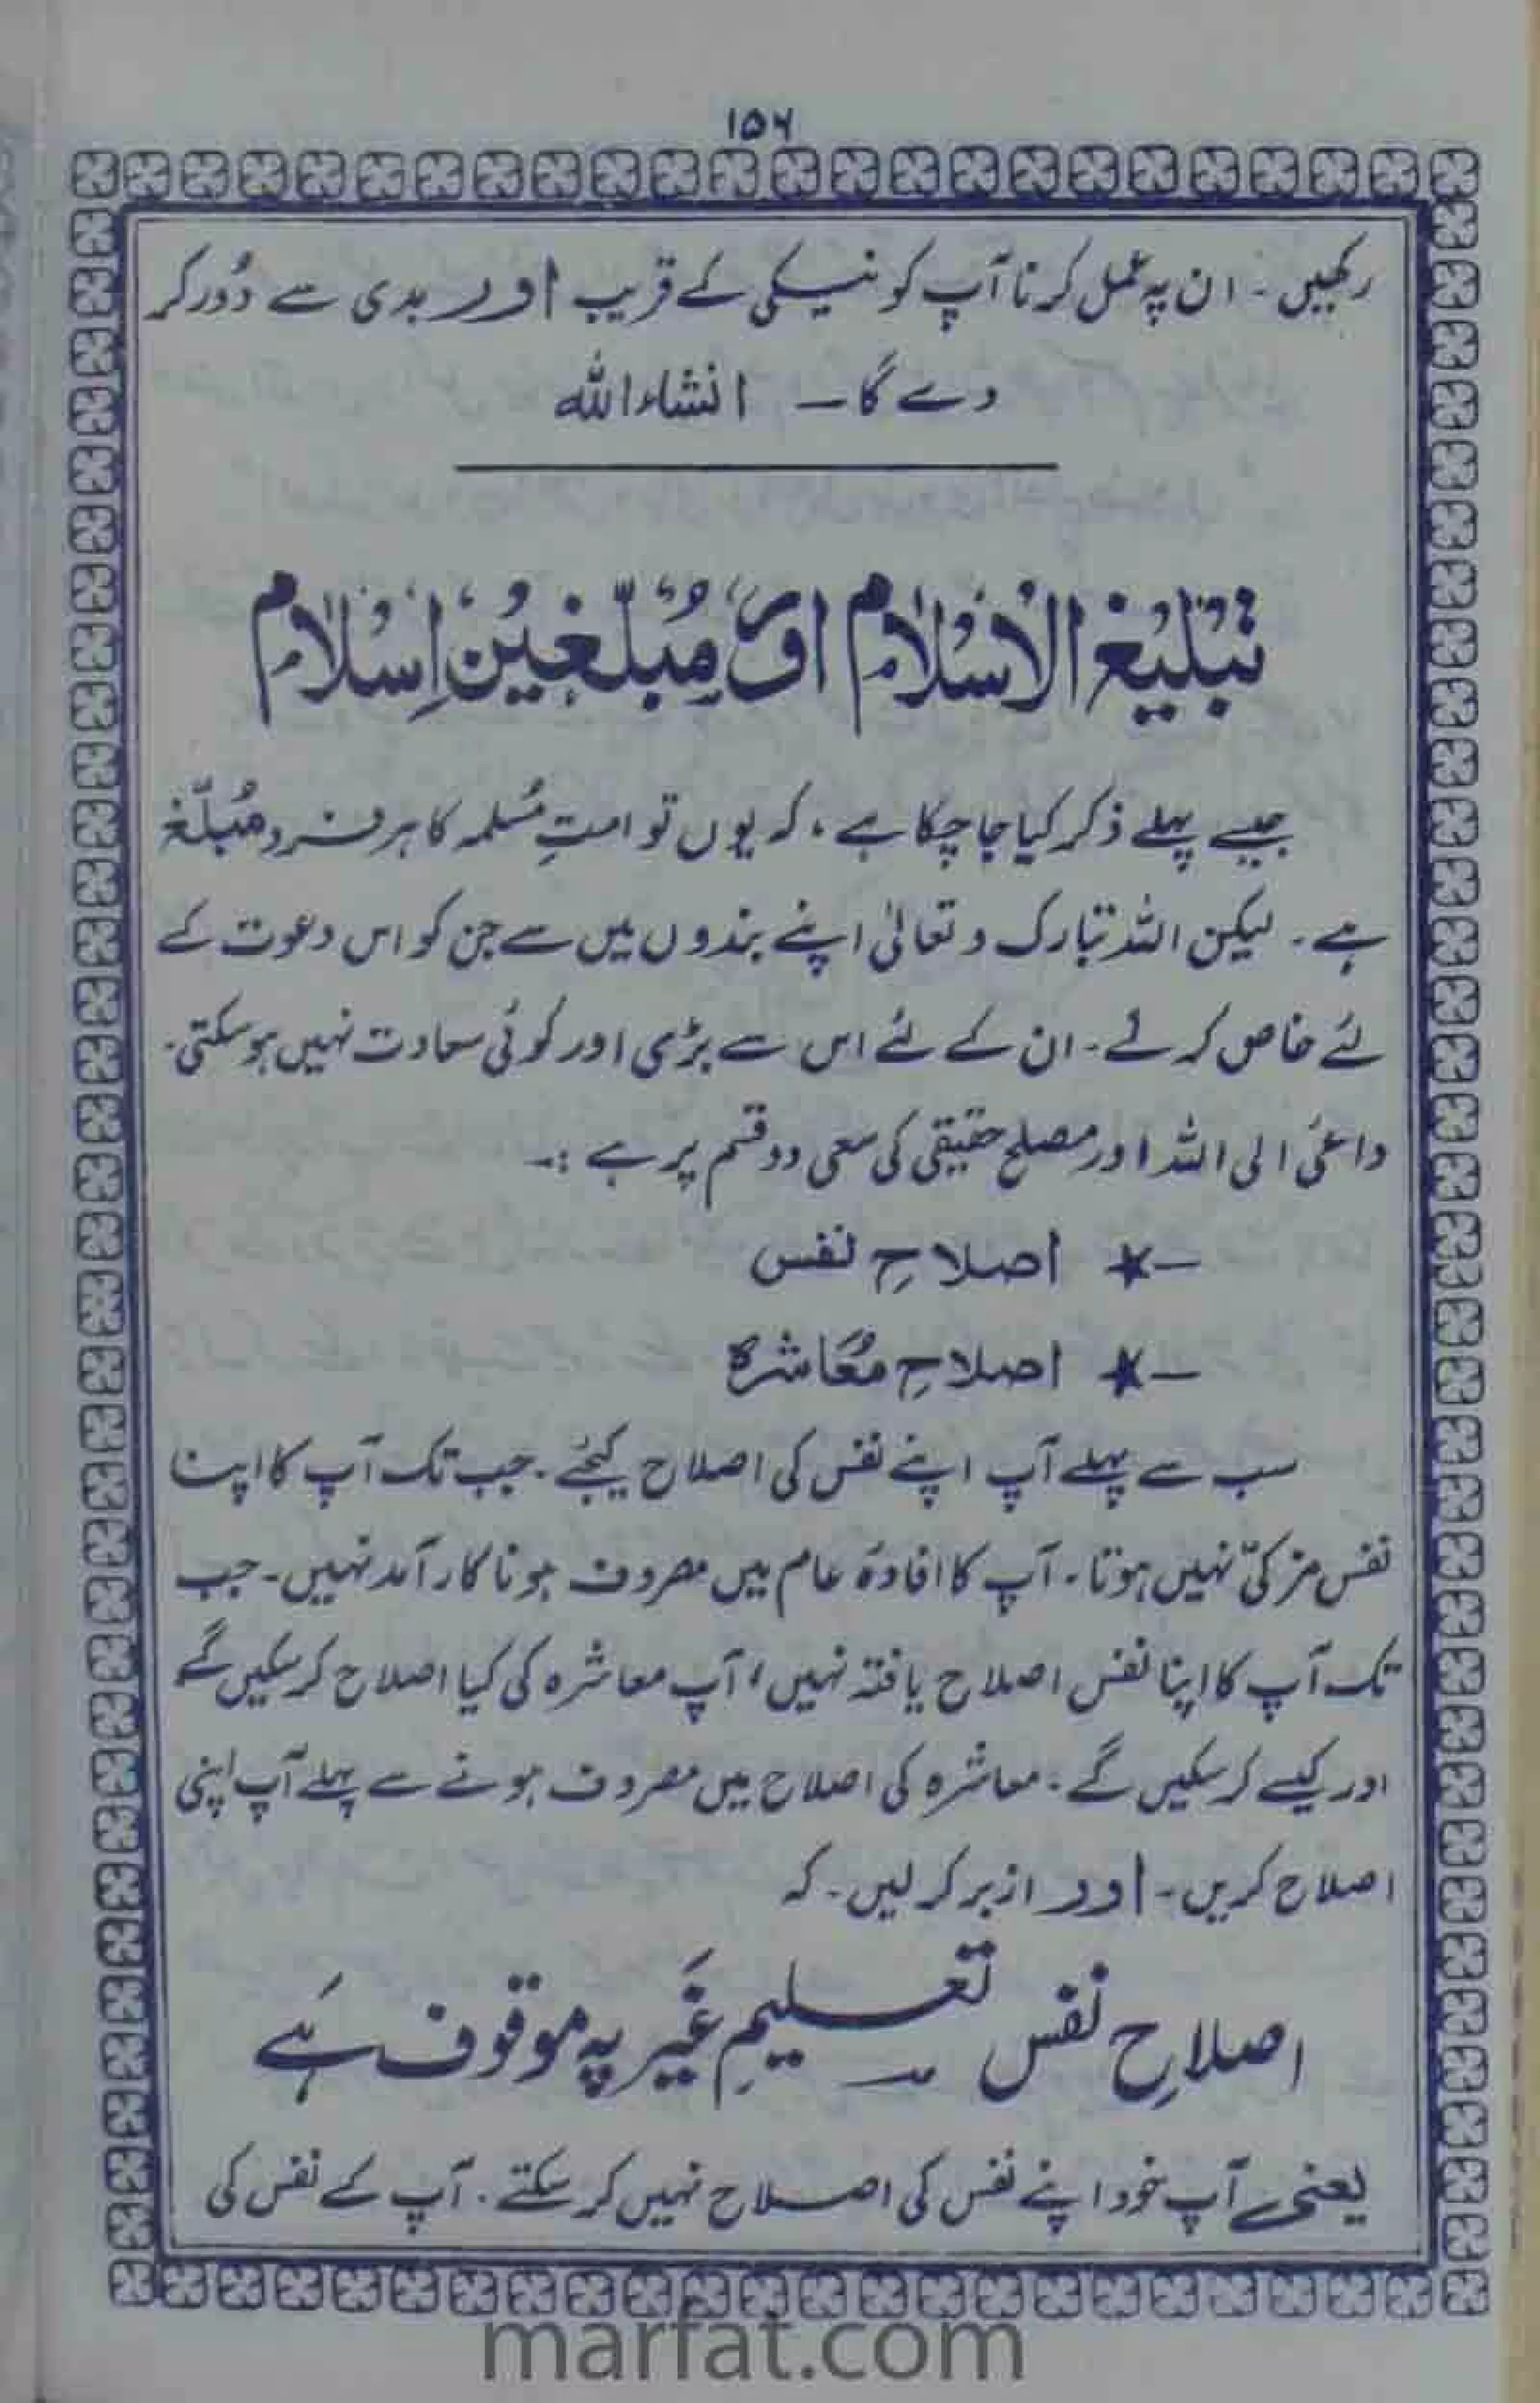 ۱۵۶
رکھیں ۔ ان پہ عمل کرنا آپ کو نیکی کے قریب اور بدی سے دُور کر
دے گا ۔ انشاء اللہ
تَبْلِیْغُ الْاِسْلَام اور مُبلّغیْن اِسْلَام
جیسے پہلے ذکر کیا جا چکا ہے ، کہ یوں تو امتِ مُسلمہ کا ہر فرد مُبلّغ
ہے ۔ لیکن اللہ تبارک و تعالیٰ اپنے بندوں میں سے جن کو اس دعوت کے
لئے خاص کر لے ۔ ان کے لئے اس سے بڑی اور کوئی سعادت نہیں ہو سکتی ۔
داعئ الی اللہ اور مصلح حقیقی کی سعی دو قسم پر ہے :۔
—★ اصلاحِ نفس
—★ اصلاحِ مُعَاشرہ
سب سے پہلے آپ اپنے نفس کی اصلاح کیجئے ۔ جب تک آپ کا اپنا
نفس مزکیّٰ نہیں ہوتا ۔ آپ کا افادۂ عام میں مصروف ہونا کار آمد نہیں ۔ جب
تک آپ کا اپنا نفس اصلاح یافتہ نہیں ، آپ معاشرہ کی کیا اصلاح کر سکیں گے
اور کیسے کر سکیں گے ۔ معاشرہ کی اصلاح میں مصروف ہونے سے پہلے آپ اپنی
اصلاح کریں ۔ اور ازبر کر لیں ۔ کہ
اصلاحِ نفس تعلیمِ غَیر پہ موقوف ہَے
یعنی آپ خود اپنے نفس کی اصلاح نہیں کر سکتے ۔ آپ کے نفس کی
marfat.com